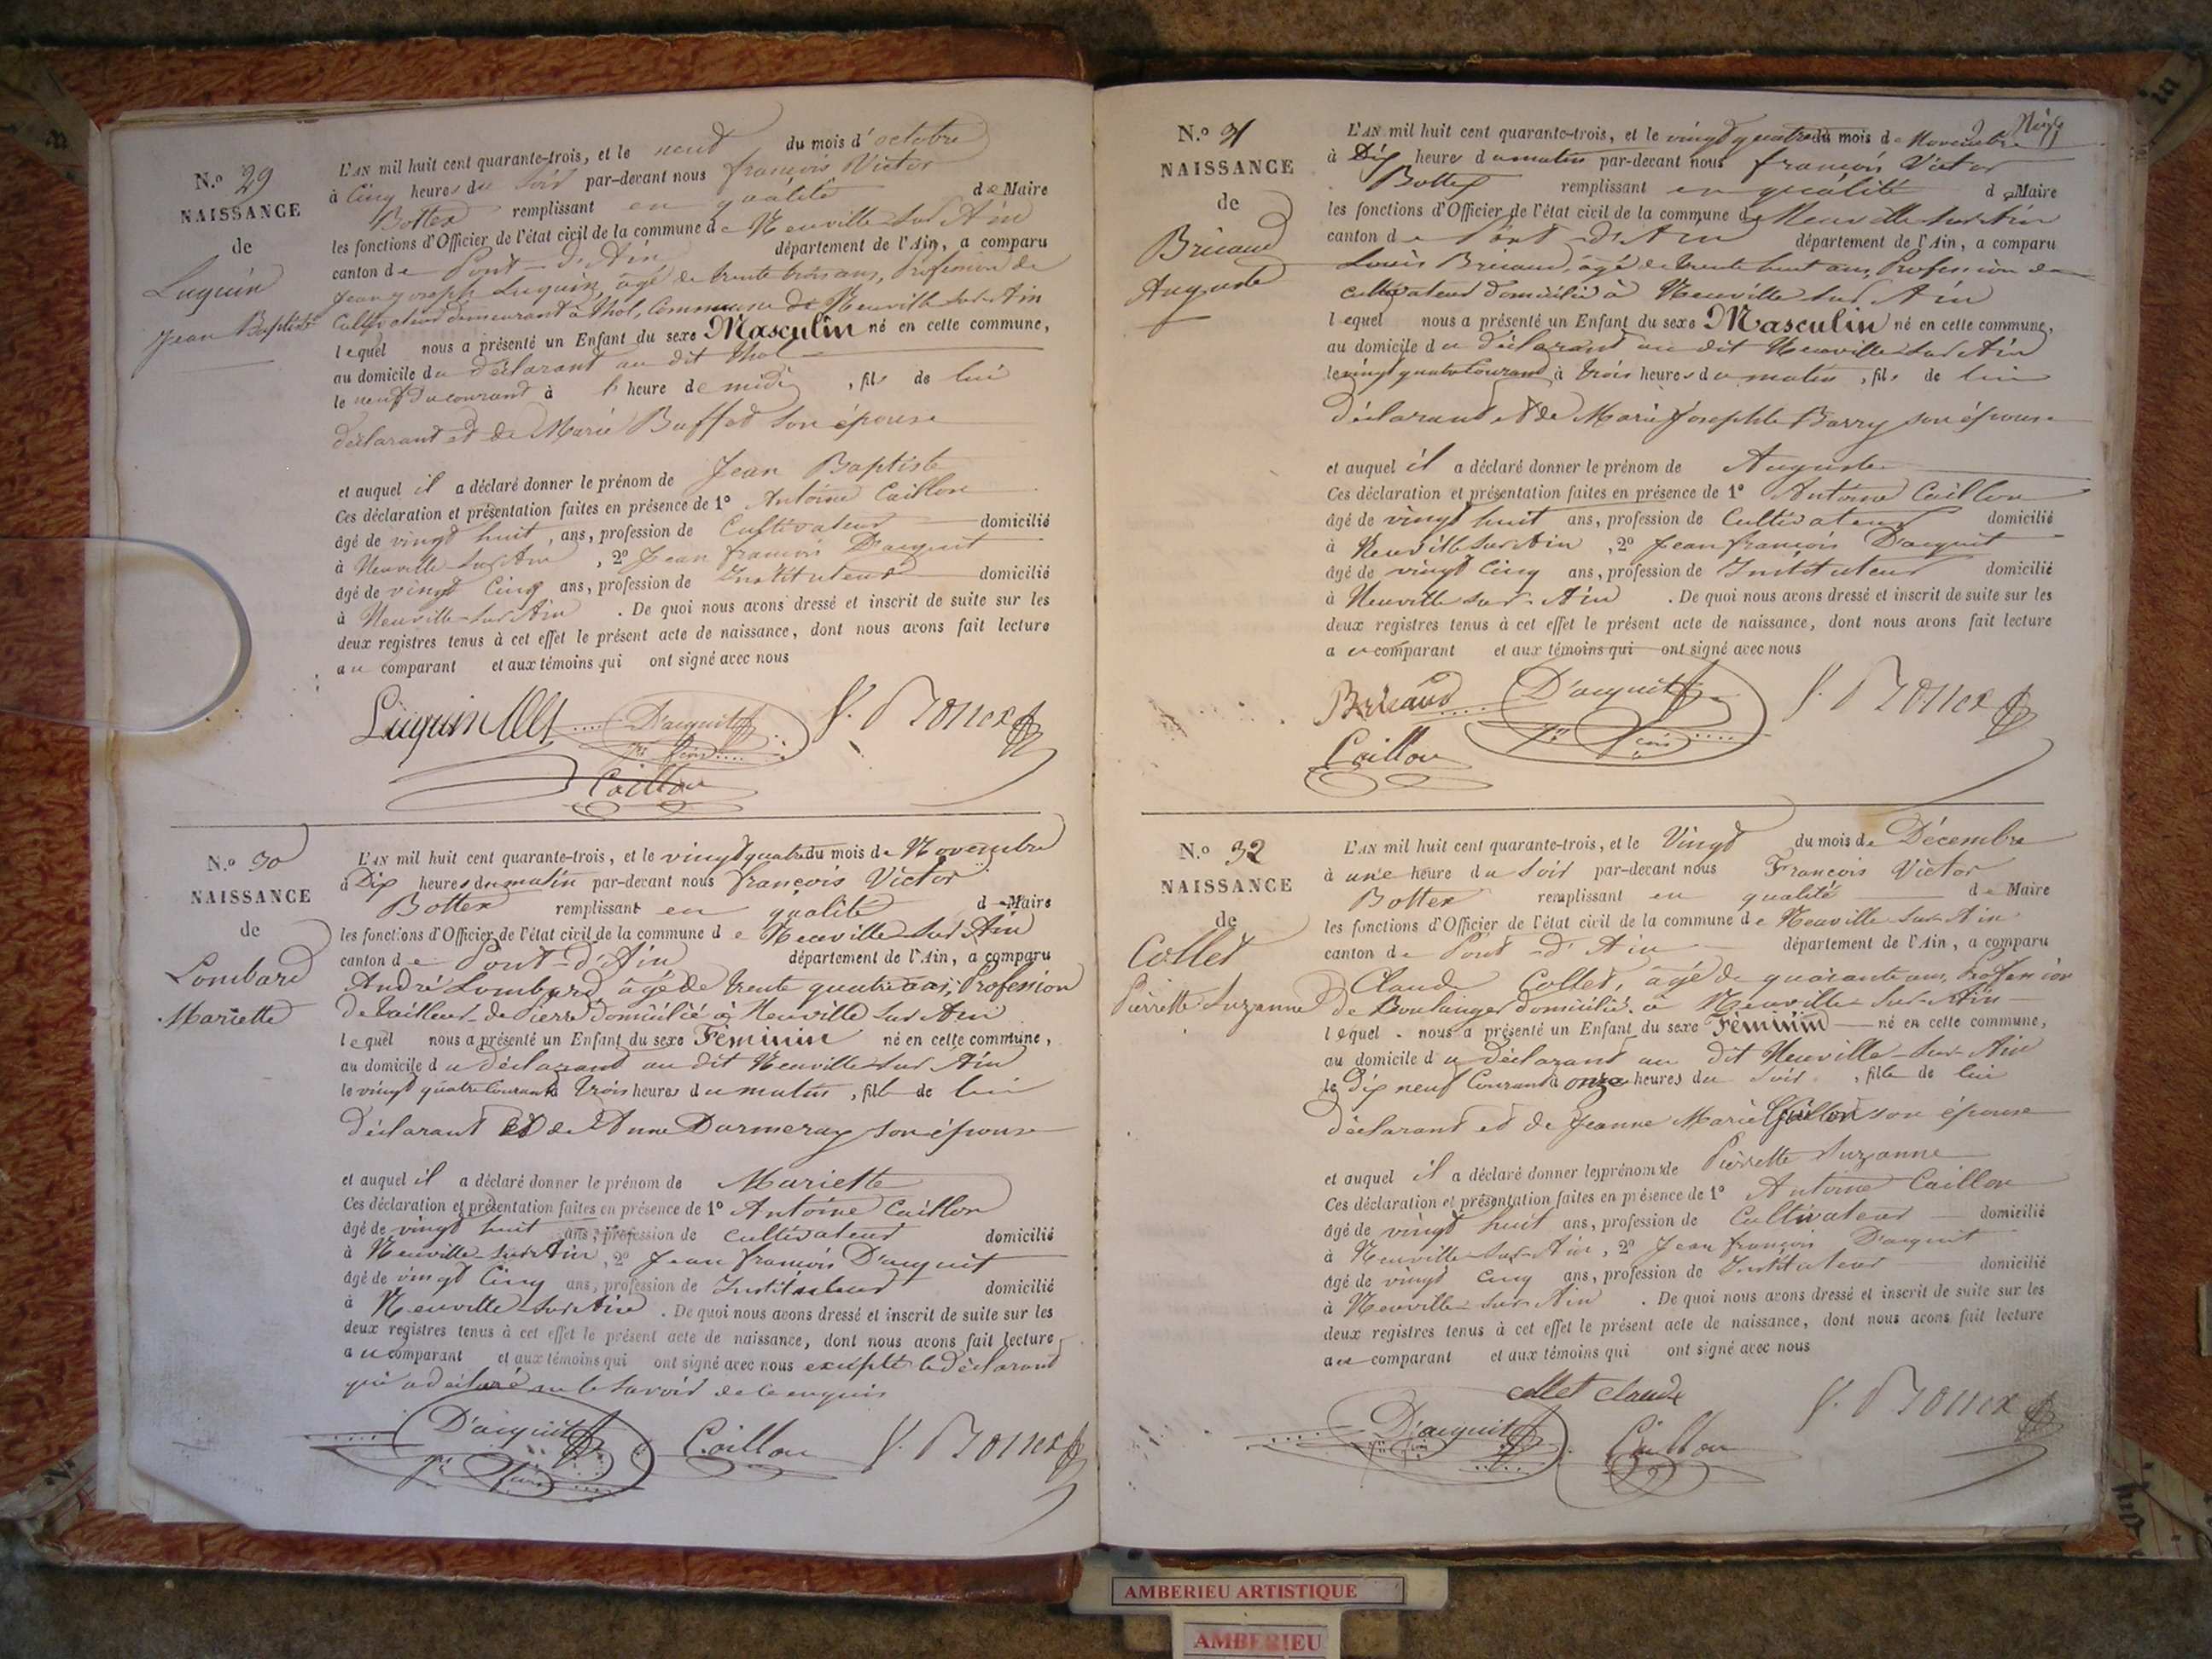 N.º 29
NAISSANCE
de
Luquin
Jean Baptiste
L'AN mil huit cent quarante-trois, et le neuf du mois d'octobre
à Cinq heures du soir par-devant nous françois Victor
Bottex remplissant en qualité de Maire
les fonctions d'Officier de l'état civil de la commune de Neuville sur Ain
canton de Pont-d'Ain département de l'Ain, a comparu
Jean Joseph Luquin, âgé de trente trois ans, Profession de
Cultivateur demeurant à Thol, Commune de Neuville sur Ain
lequel nous a présenté un Enfant du sexe Masculin né en cette commune,
au domicile du déclarant au dit Thol
le neuf du courant à l'heure de midi, fils de lui
déclarant et de Marie Buffet son épouse
et auquel il a déclaré donner le prénom de Jean Baptiste
Ces déclaration et présentation faites en présence de 1º Antoine Caillon
âgé de vingt huit, ans, profession de Cultivateur domicilié
à Neuville sur Ain, 2º Jean françois D'acquit
âgé de vingt Cinq ans, profession de Instituteur domicilié
à Neuville-sur Ain. De quoi nous avons dressé et inscrit de suite sur les
deux registres tenus à cet effet le présent acte de naissance, dont nous avons fait lecture
au comparant et aux témoins qui ont signé avec nous
Luquin D'acquit V. Bottex
Caillon
N.º 30
NAISSANCE
de
Lombard
Mariette
L'AN mil huit cent quarante-trois, et le vingt quatre du mois de Novembre
à Dix heures du matin par-devant nous françois Victor
Bottex remplissant en qualité de Maire
les fonctions d'Officier de l'état civil de la commune de Neuville sur Ain
canton de Pont-d'Ain département de l'Ain, a comparu
André Lombard, âgé de trente quatre ans, Profession
de tailleur de Pierre domicilié à Neuville sur Ain
lequel nous a présenté un Enfant du sexe Féminin né en cette commune,
au domicile du déclarant au dit Neuville sur Ain
le vingt quatre Courant à trois heures du matin, fille de lui
déclarant et de Anne Darmeray son épouse
et auquel il a déclaré donner le prénom de Mariette
Ces déclaration et présentation faites en présence de 1º Antoine Caillon
âgé de vingt huit ans, profession de cultivateur domicilié
à Neuville-sur Ain, 2º Jean françois D'acquit
âgé de vingt Cinq ans, profession de Instituteur domicilié
à Neuville-sur Ain. De quoi nous avons dressé et inscrit de suite sur les
deux registres tenus à cet effet le présent acte de naissance, dont nous avons fait lecture
au comparant et aux témoins qui ont signé avec nous excepté le déclarant
qui a déclaré ne le savoir de ce enquis
D'acquit Caillon V. Bottex
N.º 31
NAISSANCE
de
Bricaud
Auguste
L'AN mil huit cent quarante-trois, et le vingt quatre du mois de Novembre
à Dix heures du matin par-devant nous françois Victor
Bottex remplissant en qualité de Maire
les fonctions d'Officier de l'état civil de la commune de Neuville sur Ain
canton de Pont-d'Ain département de l'Ain, a comparu
Louis Bricaud, âgé de trente huit ans, Profession de
cultivateur domicilié à Neuville sur Ain
lequel nous a présenté un Enfant du sexe Masculin né en cette commune,
au domicile du déclarant au dit Neuville sur Ain
le vingt quatre Courant à trois heures du matin, fils de lui
déclarant et de Marie Josephte Barry son épouse
et auquel il a déclaré donner le prénom de Auguste
Ces déclaration et présentation faites en présence de 1º Antoine Caillon
âgé de vingt huit ans, profession de Cultivateur domicilié
à Neuville sur Ain, 2º Jean françois D'acquit
âgé de vingt Cinq ans, profession de Instituteur domicilié
à Neuville sur Ain. De quoi nous avons dressé et inscrit de suite sur les
deux registres tenus à cet effet le présent acte de naissance, dont nous avons fait lecture
au comparant et aux témoins qui ont signé avec nous
Bricaud D'acquit V. Bottex
Caillon
N.º 32
NAISSANCE
de
Collet
Pierrette Suzanne
L'AN mil huit cent quarante-trois, et le Vingt du mois de Décembre
à une heure du soir par-devant nous François Victor
Bottex remplissant en qualité de Maire
les fonctions d'Officier de l'état civil de la commune de Neuville-sur-Ain
canton de Pont-d'Ain département de l'Ain, a comparu
Claude Collet, âgé de quarante ans, Profession
de Boulanger domicilié à Neuville-sur-Ain
lequel nous a présenté un Enfant du sexe Féminin né en cette commune,
au domicile du déclarant au dit Neuville-sur-Ain
le Dix neuf Courant à onze heures du soir, fille de lui
déclarant et de Jeanne Marie son épouse
et auquel il a déclaré donner les prénoms de Pierrette Suzanne
Ces déclaration et présentation faites en présence de 1º Antoine Caillon
âgé de vingt huit ans, profession de Cultivateur domicilié
à Neuville-sur-Ain, 2º Jean françois D'acquit
âgé de vingt cinq ans, profession de Instituteur domicilié
à Neuville-sur Ain. De quoi nous avons dressé et inscrit de suite sur les
deux registres tenus à cet effet le présent acte de naissance, dont nous avons fait lecture
au comparant et aux témoins qui ont signé avec nous
collet claude V. Bottex
D'acquit Caillon
AMBERIEU ARTISTIQUE
AMBERIEU